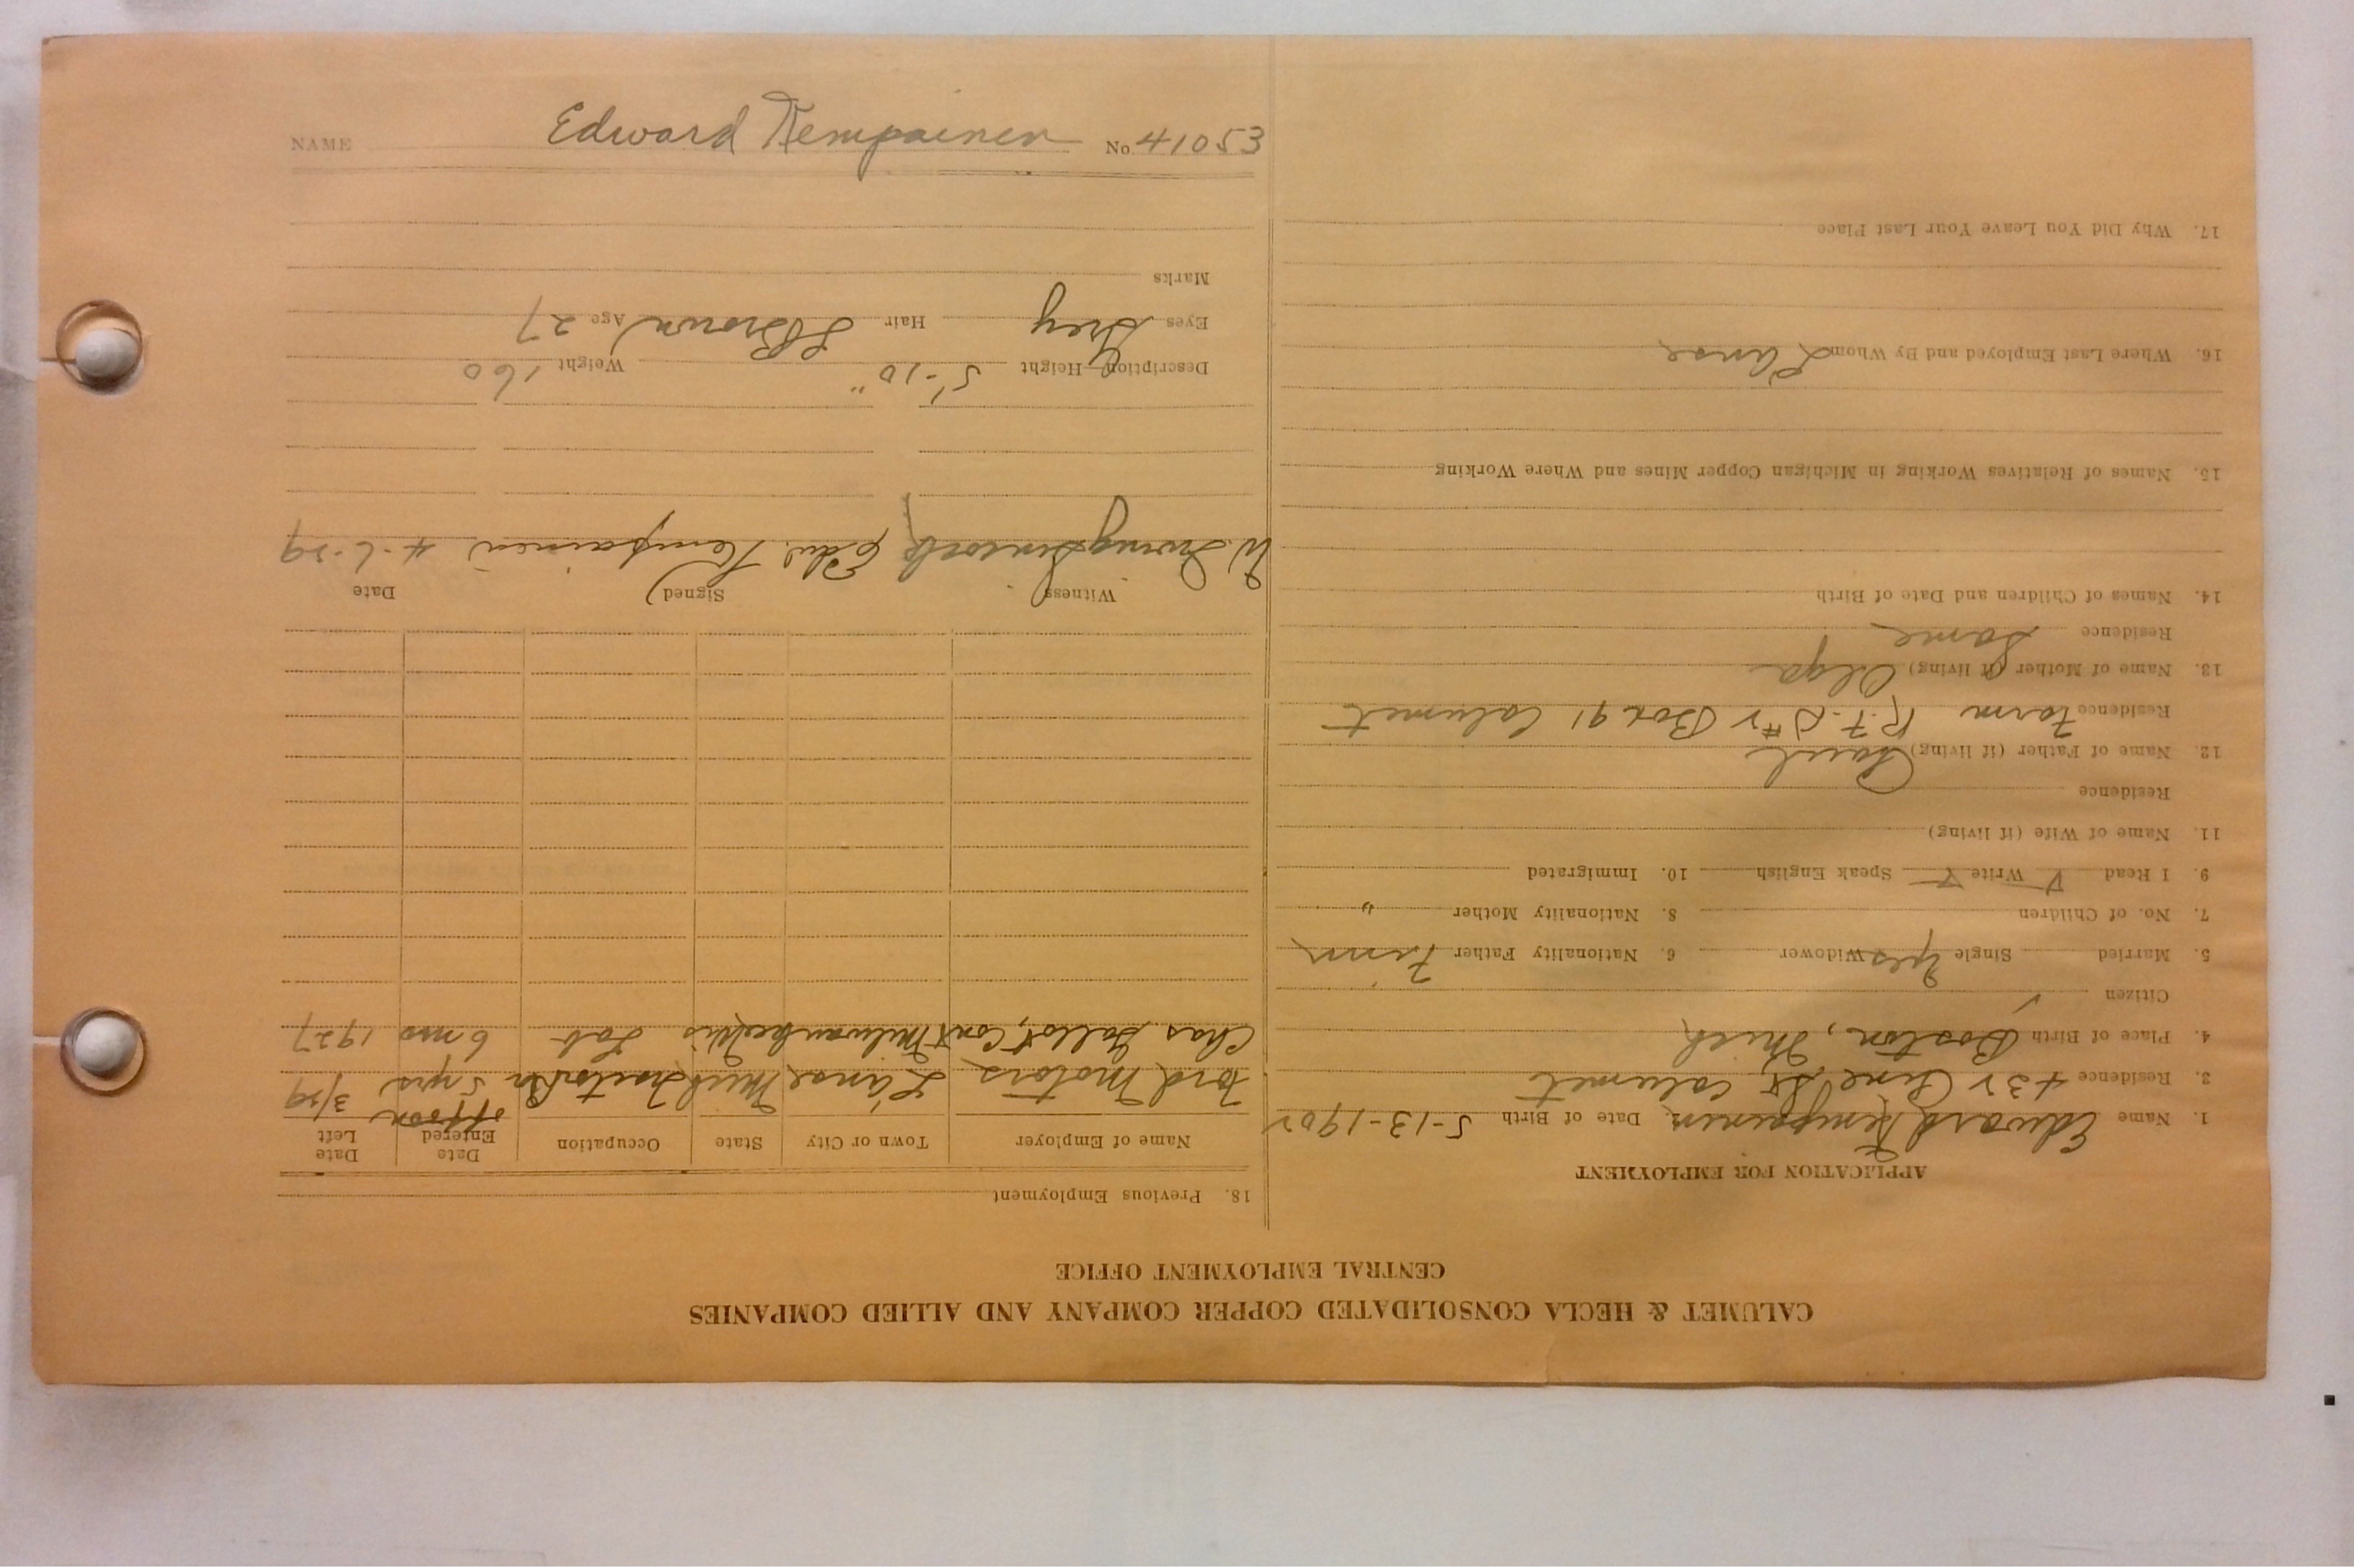 NAME Edward Kempainen No. 41053
CALUMET & HECLA CONSOLIDATED COPPER COMPANY AND ALLIED COMPANIES
CENTRAL EMPLOYMENT OFFICE
APPLICATION FOR EMPLOYMENT
1. Name Edward Kempainen Date of Birth 5-13-1902
3. Residence 432 Pine St Calumet
4. Place of Birth Boston, Mich
Citizen ✓
5. Married Single yes Widower 6. Nationality Father Finn
7. No. of Children 8. Nationality Mother "
9. I Read ✓ Write ✓ Speak English 10. Immigrated
11. Name of Wife (if living)
Residence
12. Name of Father (if living) Paul
Residence Farm R.F.D #2 Box 91 Calumet
13. Name of Mother (if living) Olga
Residence Same
14. Names of Children and Date of Birth
15. Names of Relatives Working in Michigan Copper Mines and Where Working
16. Where Last Employed and By Whom L'anse
17. Why Did You Leave Your Last Place
18. Previous Employment
Name of Employer Town or City State Occupation Date Entered Date Left
off & on
Ford Motors L'anse Mich Tractor 5 yrs 3/29
Chas Cont Milwaukee Wis Lab 6 mos 1927
Witness Signed Date
W. Irving Edw. Kempainen 4-6-29
Description Height 5'-10" Weight 160
Eyes Grey Hair L Brown Age 27
Marks